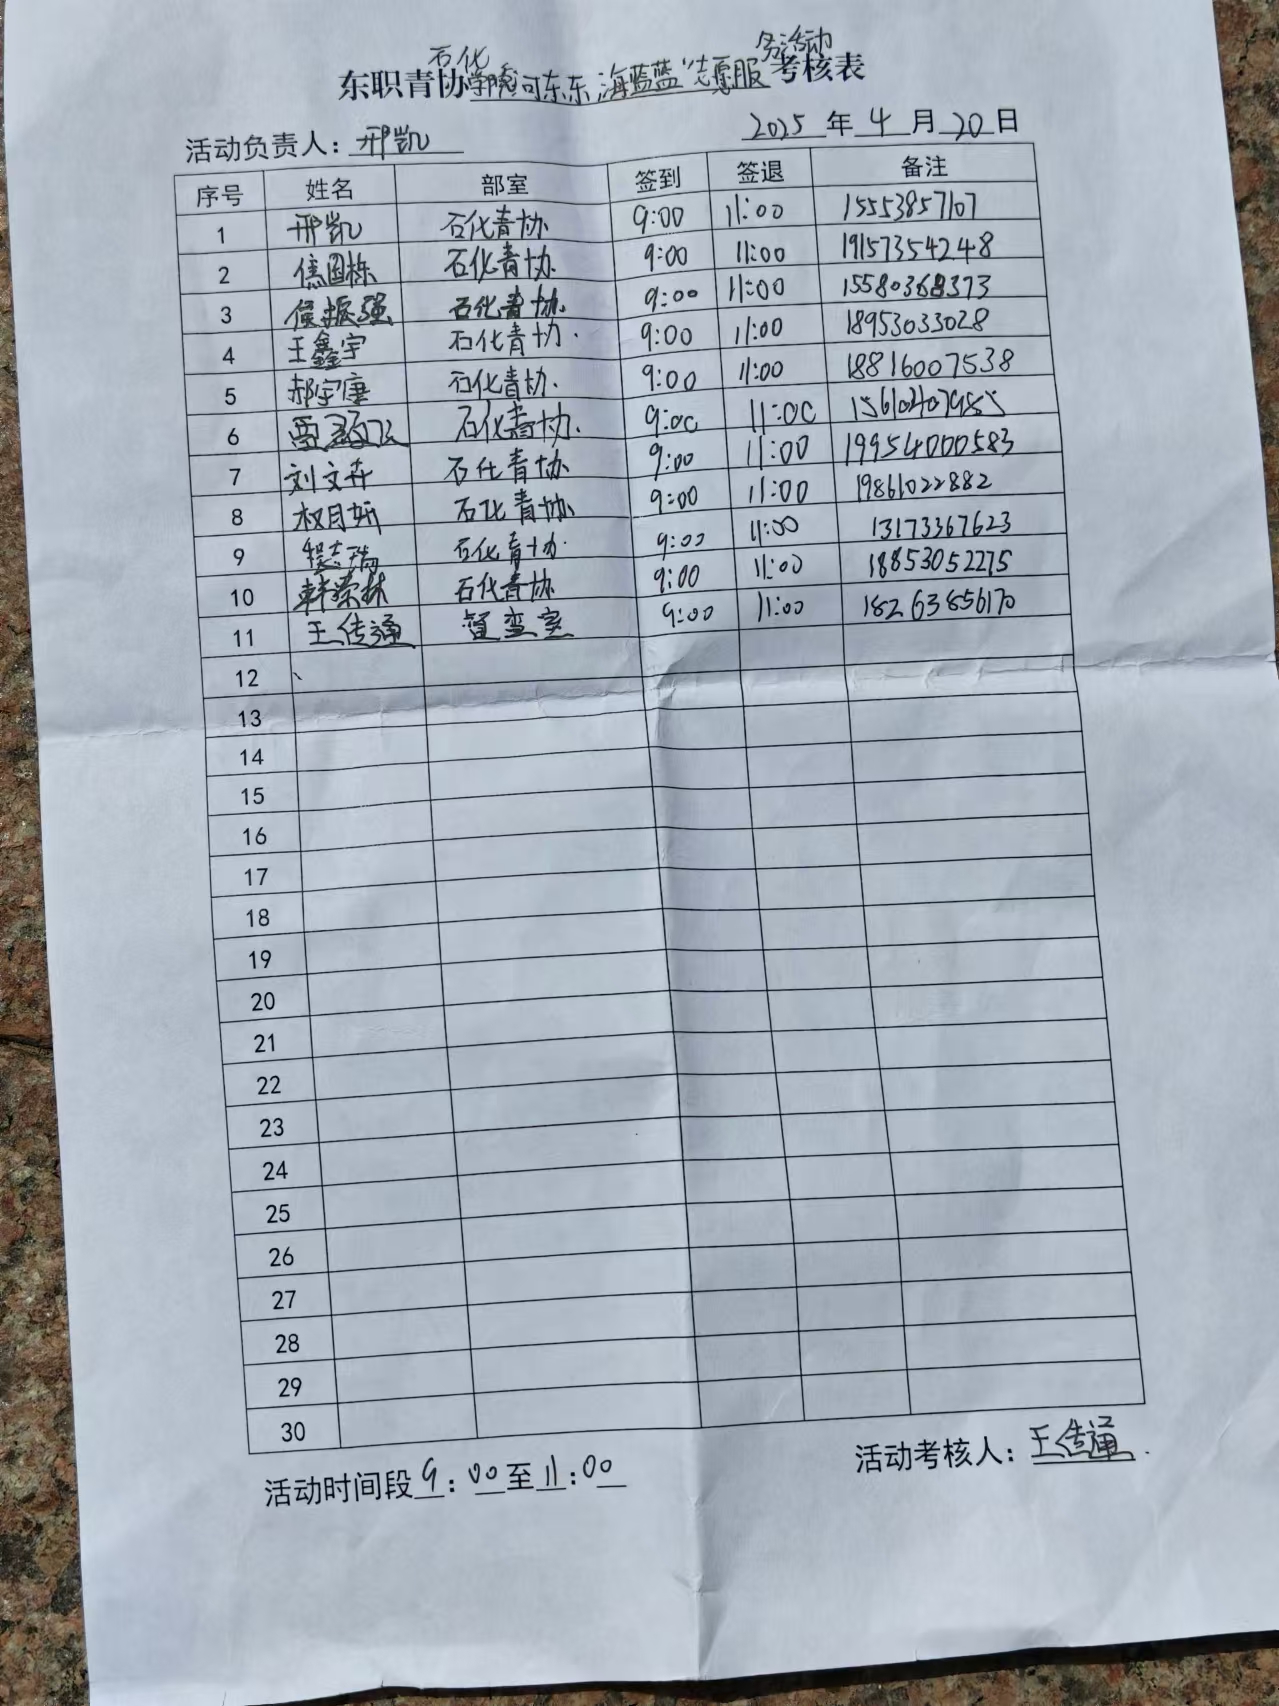 石化 务活动
东职青协学院河东东海蓝蓝"志愿服考核表
活动负责人：邢凯 2025年4月20日
序号 姓名 部室 签到 签退 备注
1 邢凯 石化青协 9:00 11:00 15553857107
2 焦国栋 石化青协 9:00 11:00 19157354248
3 侯振强 石化青协 9:00 11:00 15580368373
4 王鑫宇 石化青协 9:00 11:00 18953033028
5 郝宇康 石化青协 9:00 11:00 18816007538
6 石化青协 9:00 11:00
7 刘文卉 石化青协 9:00 11:00 19954000583
8 权月娇 石化青协 9:00 11:00 19861022882
9 石化青协 9:00 11:00 13173367623
10 韩荣林 石化青协 9:00 11:00 18853052275
11 王传通 督查室 9:00 11:00 18263856170
12
13
14
15
16
17
18
19
20
21
22
23
24
25
26
27
28
29
30
活动时间段9:00至11:00 活动考核人：王传通